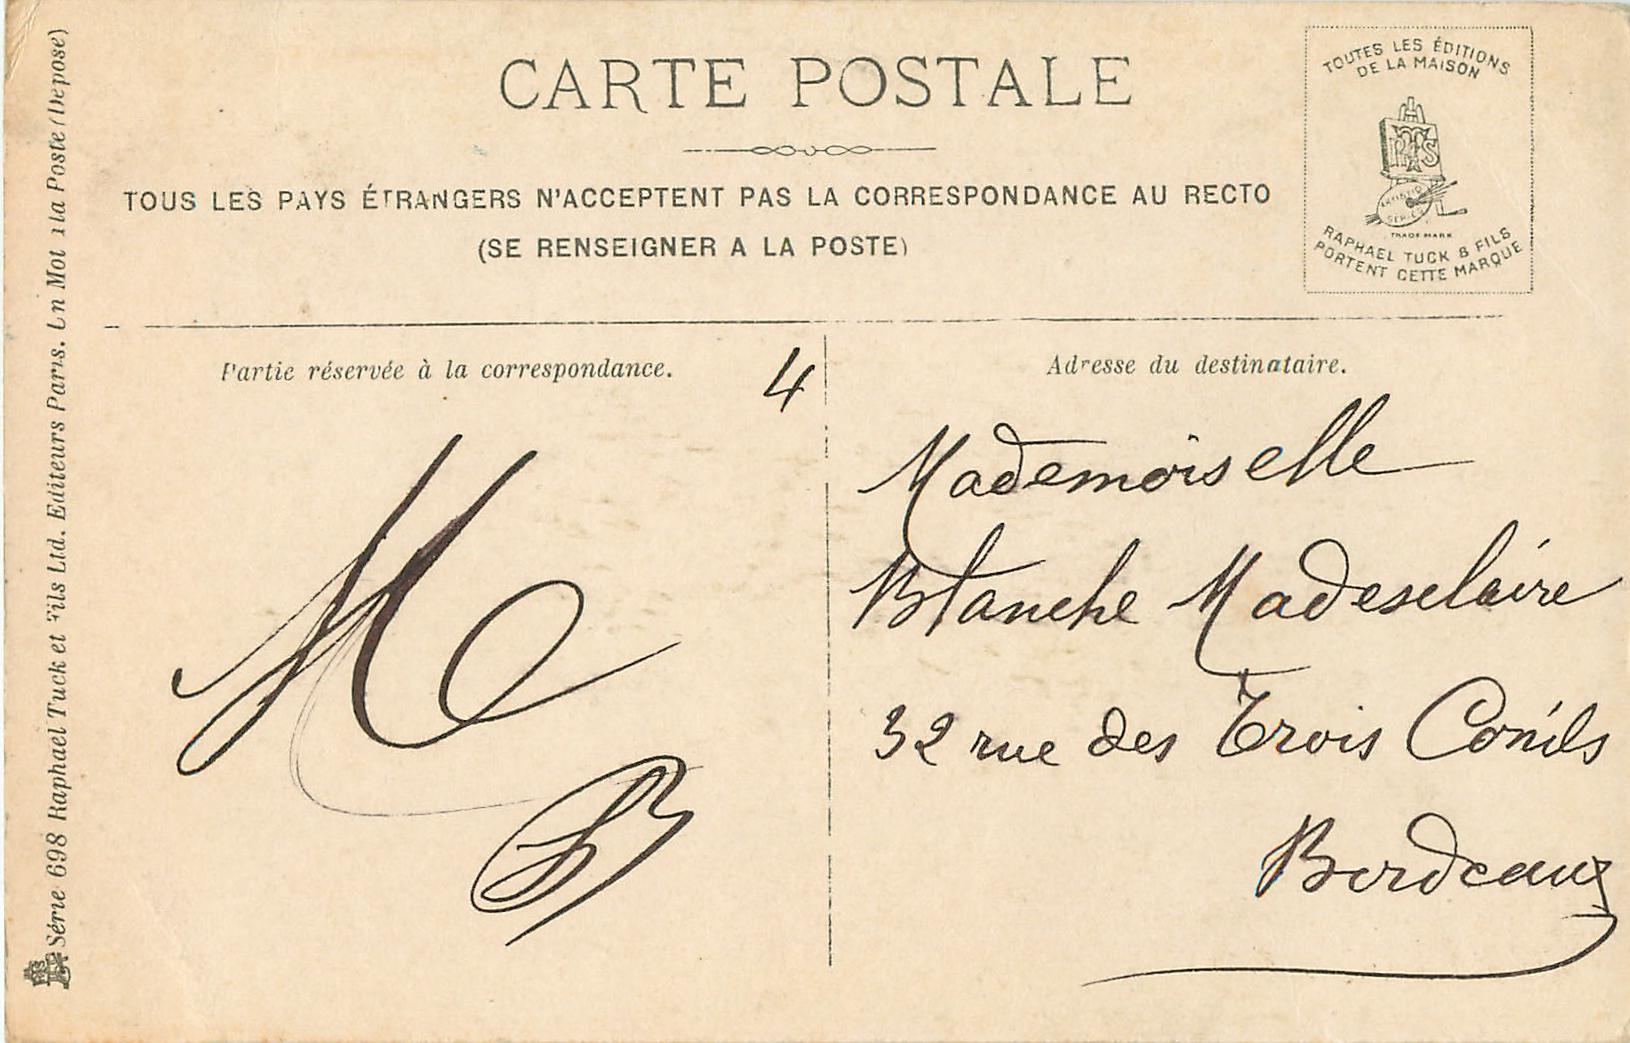 CARTE POSTALE
TOUS LES PAYS ÉTRANGERS N'ACCEPTENT PAS LA CORRESPONDANCE AU RECTO
(SE RENSEIGNER A LA POSTE)
TOUTES LES ÉDITIONS
DE LA MAISON
ARTISTIC
SERIES
TRADE MARK
RAPHAEL TUCK & FILS
PORTENT CETTE MARQUE
Série 698 Raphael Tuck et Fils Ltd. Editeurs Paris. Un Mot à la Poste (Déposé)
Partie réservée à la correspondance.
4
Adresse du destinataire.
Mademoiselle
Blanche Madesclaire
32 rue des Trois Conils
Bordeaux